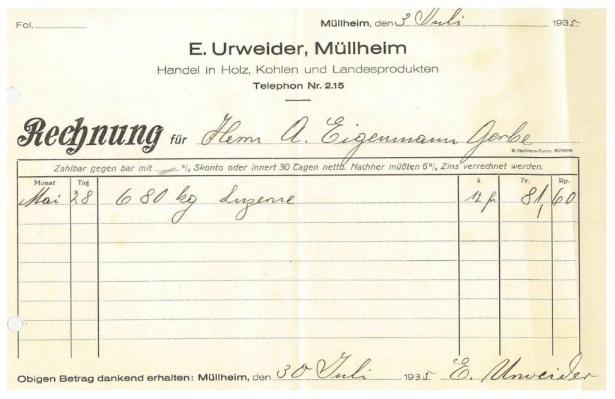 Fol. Müllheim, den 3 Juli 1935
E. Urweider, Müllheim
Handel in Holz, Kohlen und Landesprodukten
Telephon Nr. 2.15
Rechnung für Herrn A. Eigenmann Gerbe
Zahlbar gegen bar mit % Skonto oder innert 30 Tagen netto. Nachher müßten 6% Zins verrechnet werden.
Monat Tag à Fr. Rp.
Mai 28 680 kg Luzerne 12 fr 81 60
Obigen Betrag dankend erhalten: Müllheim, den 30 Juli 1935 E. Urweider